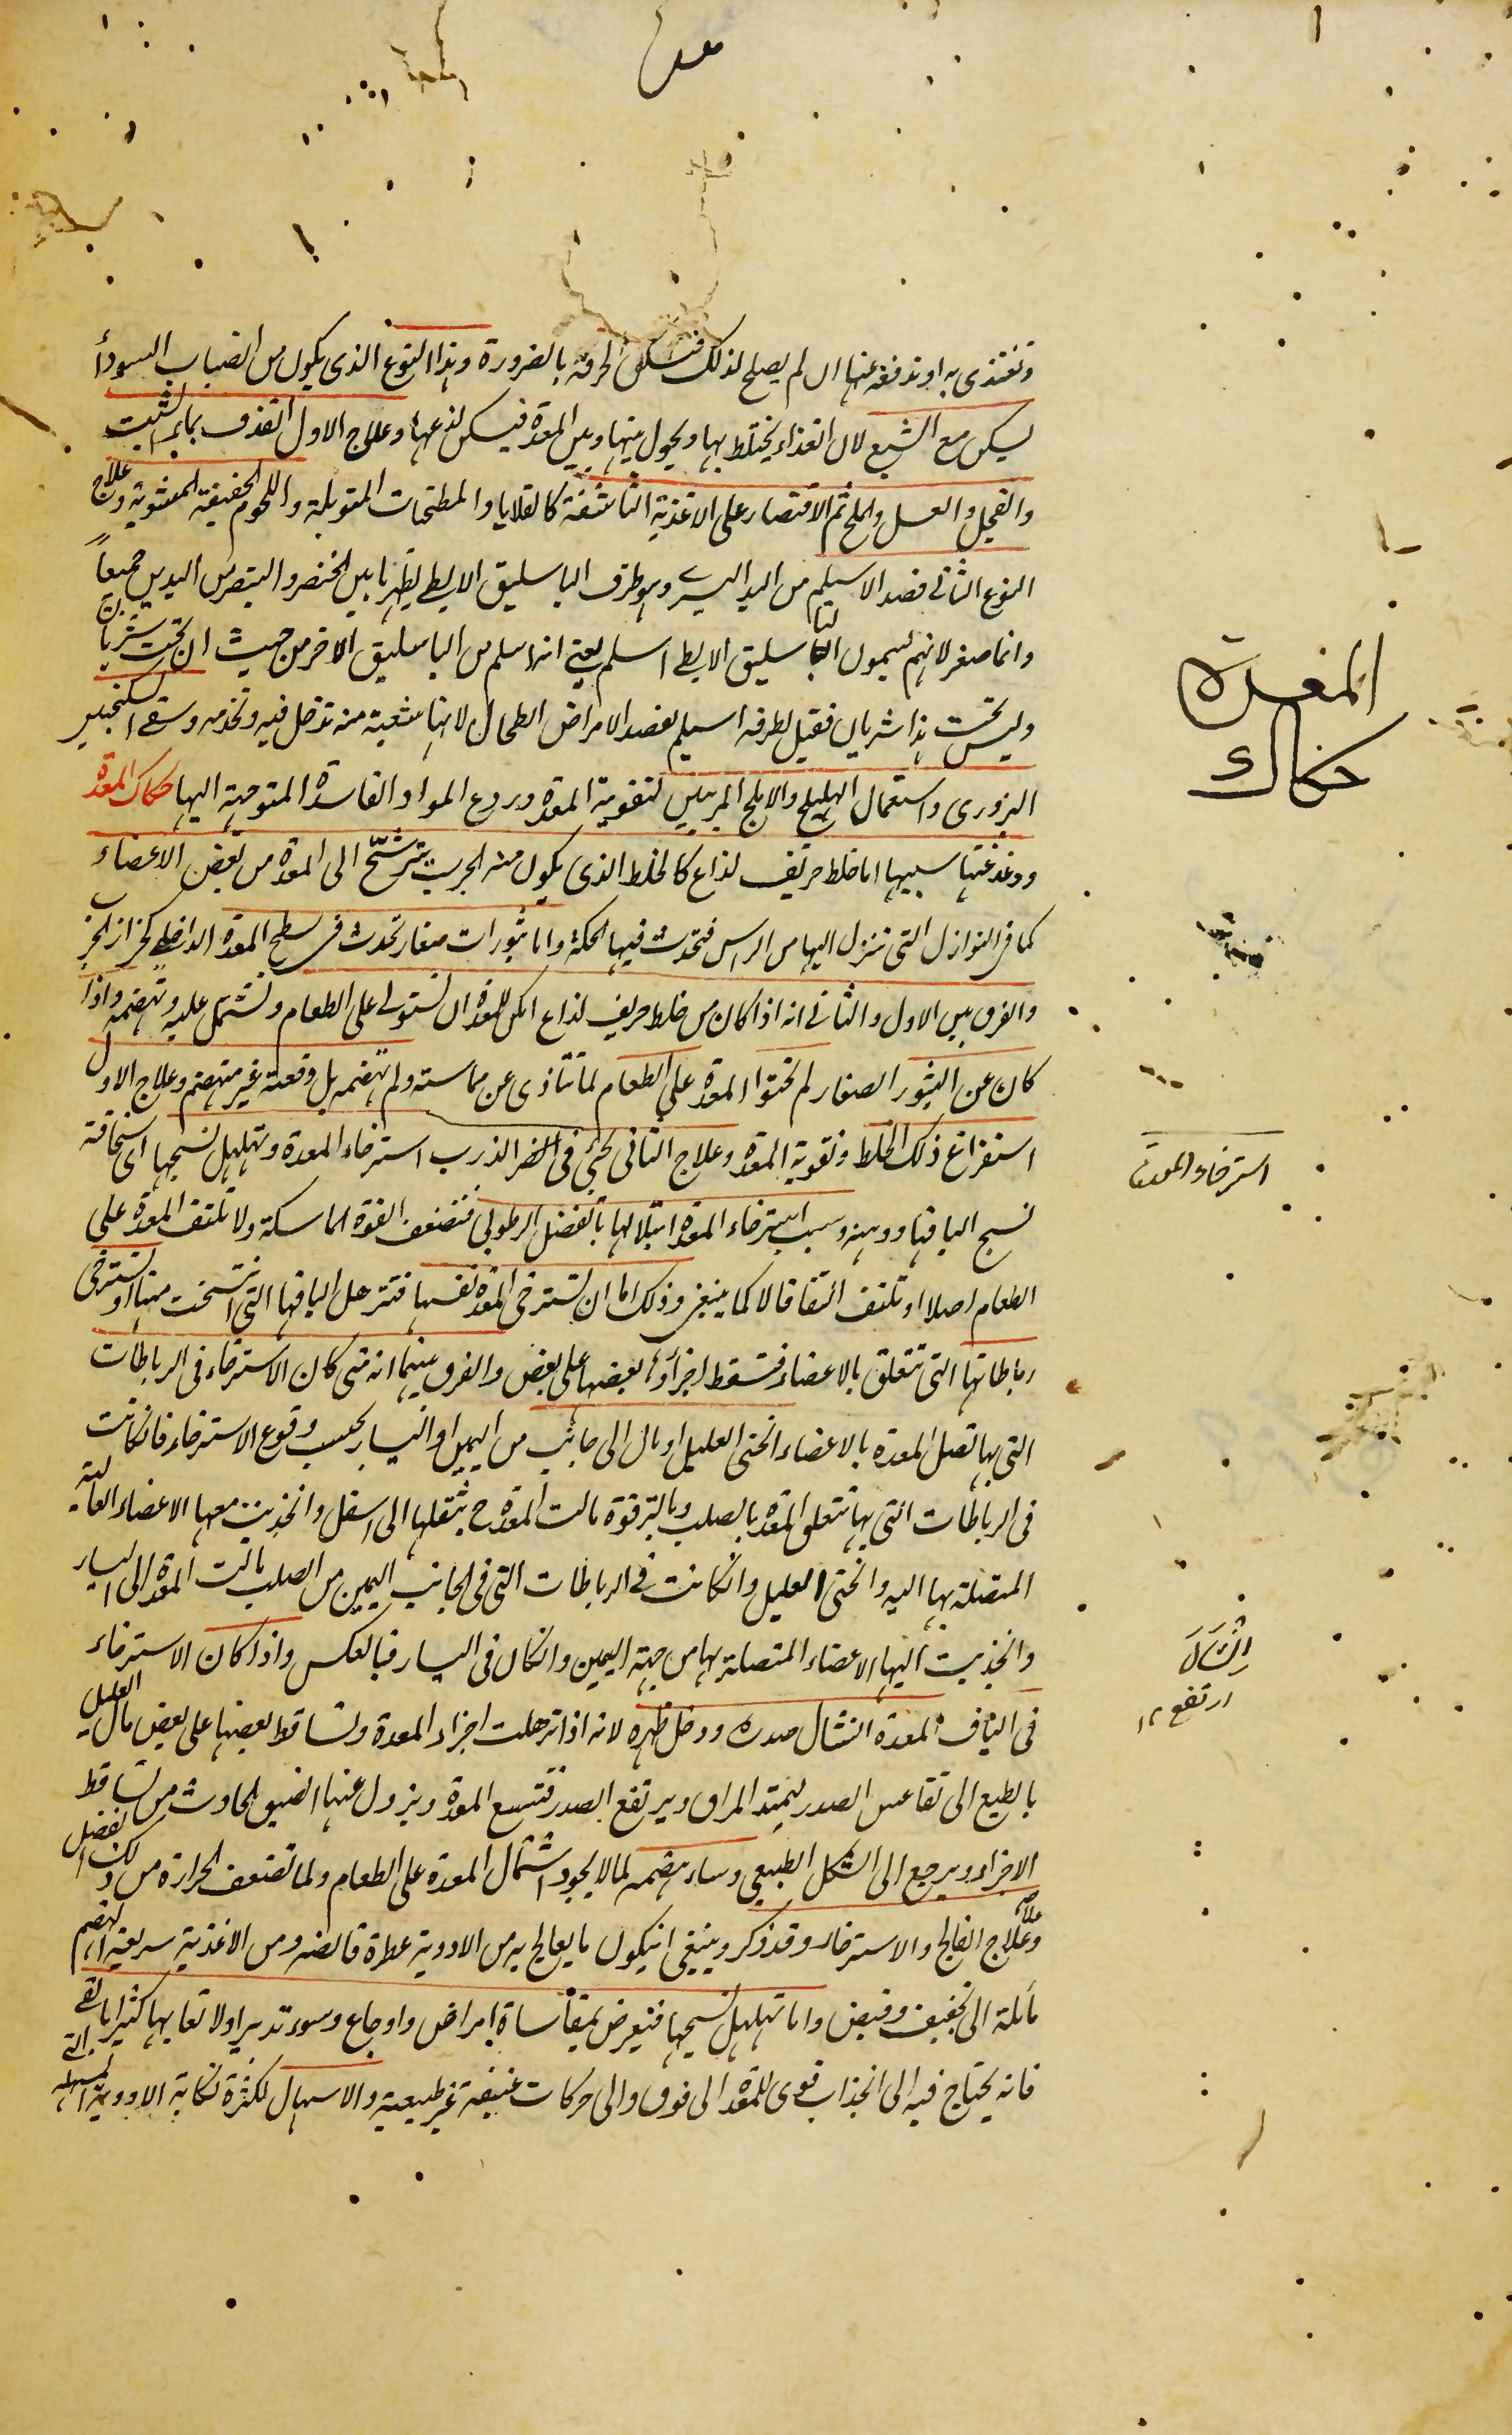 معد
وتغتذى به او تدفعه عنها ان لم يصلح لذلك فتسكن الحرقة بالضرورة وهذا النوع الذى يكون من انصباب السوداء
يسكن مع الشبع لان الغذاء يختلط بها ويحول بينها وبين المعدة فيسكن لذعها وعلاج الاول القذف بماء الشبت
والفجل والعسل والملح ثم الاقتصار على الاغذية الناشفة كالقلايا والمطجنات المتوبلة واللحوم الخفيفة المشوية وعلاج
النوع الثانى فصد الاسيلم من اليد اليسرى وهو طرف الباسليق الابطى يظهر ما بين الخنصر والبنصر من اليدين جميعاً
وانما صغر لانهم يسمون الباسليق الابطى اسلم يعنى انه اسلم من الباسليق الاخر من حيث ان تحته شريانا
وليس تحت هذا شريان فقيل لطرفه اسيلم يفصد لامراض الطحال لانها شعبة منه تدخل فيه وتخدمه وسقى السكنجبين
البزورى واستعمال الهليلج والاملج المربيين لتقوية المعدة وردع المواد الفاسدة المتوجهة اليها حكاك المعدة
ودغدغتها سببها اما خلط حريف لذاع كالخلط الذى يكون منه الجرب يترشّح الى المعدة من بعض الاعضاء
كما فى النوازل التى تنزل اليها من الراس فتحدث فيها الحكة واما بثورات صغار تحدث فى سطح المعدة الداخلى كخزاز الجرب
والفرق بين الاول والثانى انه اذا كان من خلط حريف لذاع امكن للمعدة ان تستولى على الطعام وتشتمل عليه وتهضمه واذا
كان عن البثور الصغار لم تحتو المعدة على الطعام لما تتاذى عن مماسته ولم تهضمه بل دفعته غير منهضم وعلاج الاول
استفراغ ذلك الخلط وتقوية المعدة وعلاج الثانى يجئ فى اخر الذرب استرخاء المعدة وتهلهل نسجها اى سخافة
نسج اليافها ووهنه وسبب استرخاء المعدة ابتلالها بالفضل الرطوبى فتضعف القوة الماسكة ولا تلتف المعدة على
الطعام اصلا او تلتف التفافا لا كما ينبغى وذلك اما ان تسترخى المعدة نفسها فتترهل اليافها التى انتسجت منها او تسترخى
رباطاتها التى تتعلق بالاعضاء فتسقط اجزاؤها بعضها على بعض والفرق بينهما انه متى كان الاسترخاء فى الرباطات
التى بها تصل المعدة بالاعضاء انحنى العليل او مال الى جانب من اليمين او اليسار بحسب وقوع الاسترخاء فانكانت
فى الرباطات التى بها تتعلق المعدة بالصلب وبالترقوة مالت المعدة ح بثقلها الى اسفل وانجذبت معها الاعضاء العالية
المتصلة بها اليه وانحنى العليل وانكانت فى الرباطات التى فى الجانب اليمين من الصلب مالت المعدة الى اليسار
وانجذبت اليها الاعضاء المتصلة بها من جهة اليمين وانكان فى اليسار فبالعكس واذا كان الاسترخاء
فى الياف المعدة انشال صدره ودخل ظهره لانه اذا ترهلت اجزاء المعدة وتساقط بعضها على بعض مال العليل
بالطبع الى تقاعس الصدر ليمتد المراق ويرتفع الصدر فتتسع المعدة ويزول عنها الضيق الحادث من تساقط
الاجزاء ويرجع الى الشكل الطبيعى وساء هضمه لما لا يجود اشتمال المعدة على الطعام ولما تضعف الحرارة من ذلك الفضل
وعلاجه علاج الفالج والاسترخاء وقد ذكر وينبغى انيكون ما يعالج به من الادوية عطرة قابضه ومن الاغذية سريعة الهضم
مائلة الى تجفيف وقبض واما تهلهل نسجها فتعرض لمقاساة امراض واوجاع وسوء تدبير اولا تعابها كثيرا بالقئ
فانه يحتاج فيه الى انجذاب قوى للمعدة الى فوق والى حركات عنيفة غير طبيعية والاسهال لكثرة نكاية الادوية المسهلة التى
المعدة
حكاك
استرخاء المعدة
اِنْشَالَ
ارتفع ١٢